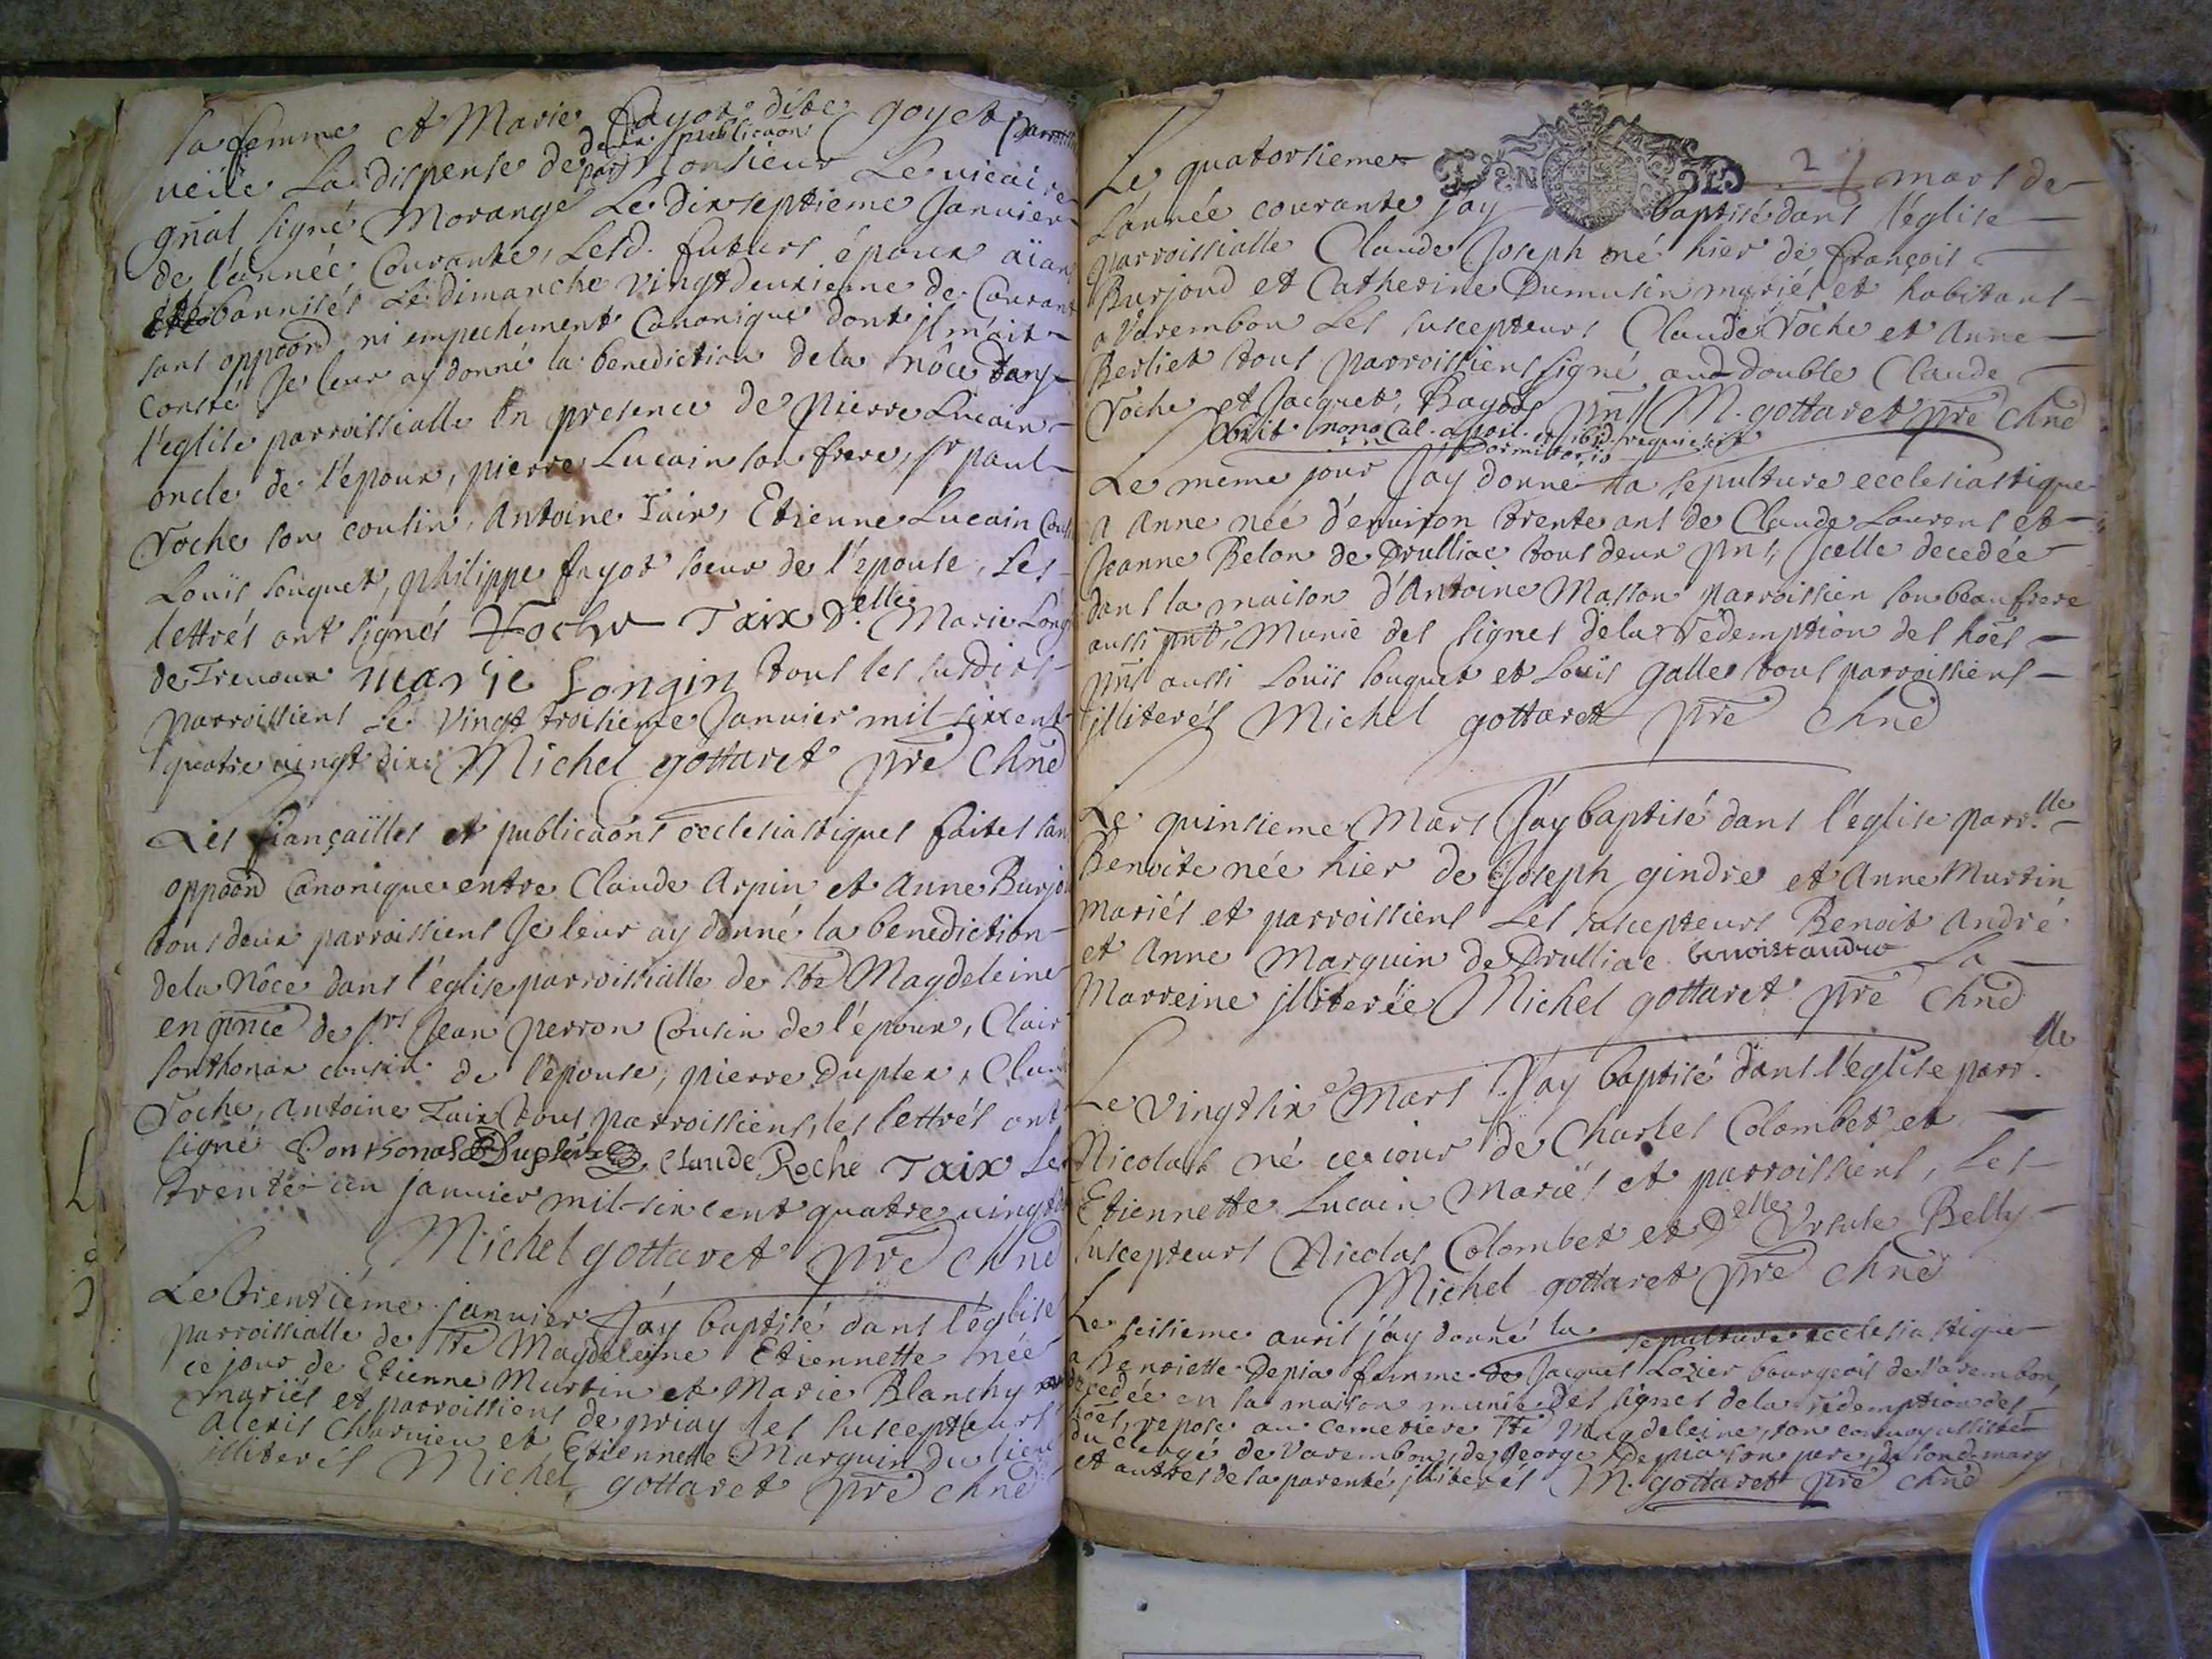 la femme et Marie fayot dite goyet
veüe La dispense de deux publicaon par Monsieur Le vicaire
gñal signé Morange Le dixseptieme Janvier
de l'année Courante, Lesd. futurs époux aïan
bannisés Le dimanche vingt deuxieme de Courant
sans oppoon ni empechement Canonique dont il m'ait
consté Je leur ay donné la benediction de la nôce dans
l'eglise parroissialle en presence de pierre Lucain
oncle de l'époux, pierre Lucain son frere, sr paul
Roche son cousin, Antoine Taix, Etienne Lucain
Louïs souquet, philippe fayot soeur de l'epouse, Les
lettrés ont signés Roche Taix D.elle Marie Long
de Trevoux marie Longin tous les susdits
parroissiens Le vingt troisieme Janvier mil-sixcent
quatre vingt dix Michel gottaret pre Chne
Les fiançailles et publicaons ecclesiastiques faites san
oppoon Canonique entre Claude Arpin et Anne Burjou
tous deux parroissiens Je leur ay donné la benediction
de la Nôce dans l'église parroissialle de Ste Magdeleine
en pnce de srs Jean perron Cousin de l'époux, Clair
sonthonax cousin de l'épouse, pierre Duplex, Claude
Roche, Antoine Taix tous parroissiens, les lettrés ont
signé Sonthonas Duplex Claude Roche Taix Le
trente un janvier mil-six cent quatre vingt dix
Michel gottaret pre Chne
Le trentiéme janvier J'ay baptisé dans l'église
parroissialle de Ste Magdeleine Etiennette née
ce jour de Etienne Murtin et Marie Blanchy
mariés et parroissiens de priay les suscepteurs
Alexis Charvieu et Etiennette Marguin du lieu
illiterés Michel gottaret pre Chne
Le quatorsieme GEN 2 mars de
L'année courante j'ay baptisé dans l'église
parroissialle Claude Joseph né hier de françois
Burjoud et Catherine Dumusin mariés et habitans
a Varembon Les suscepteurs Claude Roche et Anne
Berliet tous parroissiens signé aud double Claude
Roche et Jacquet, Bayod pnt M. gottaret pre Chne
Obiit nono Cal. april. et ibid. requiescit
Dormitorio
Le meme jour J'ay donné la sepulture ecclesiastique
a Anne née d'environ trente ans de Claude Laurens et
Jeanne Belon de Drulliac tous deux pnts, Jcelle decedée
dans la maison d'Antoine Masson parroissien son beaufrere
aussi pnt, Munie des signes de la rédemption des hoes
pnts aussi Louïs souquet et Louïs galles tous parroissiens
illiterés Michel gottaret pre Chne
Le quinsieme Mars J'ay baptisé dans l'église parr.lle
Benoite née hier de Joseph gindre et Anne Murtin
mariés et parroissiens Les suscepteurs Benoit André
et Anne Marguin de Drulliac benoist andre La
Marreine illiterée Michel gottaret pre Chne
Le vingt six Mars J'ay baptisé dans l'église parr.lle
Nicolas né ce jour de Charles Colombet et
Etiennette Lucain Mariés et parroissiens, Les
suscepteurs Nicolas Colombet et Delle Ursule Belly
Michel gottaret pre Chne
Le seisieme avril j'ay donné la sepulture ecclesiastique
a henriette Depia femme de Jacques Lozier bourgeois de Varembon,
decedée en sa maison munie des signes de la rédemption des
hoes, repose au cemetiere Ste Magdeleine, son convoy assisté
du clergé de Varembon, de George Depia son pere, de sond. mary
et autres de la parenté illiterés M. gottaret pre Chne